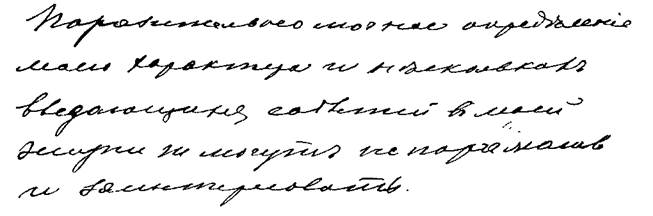 Поразительно точное опредѣленіе
моего характера и нѣсколькихъ
выдающихся событій въ моей
жизни не могутъ не поражать
и заинтересовать.